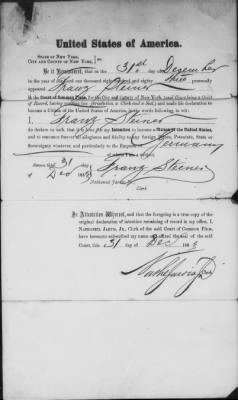 United States of America.
STATE OF NEW YORK,
CITY AND COUNTY OF NEW YORK,
BE IT REMEMBERED, that on the 31st day December
in the year of our Lord one thousand eight hundred and eighty personally
appeared Franz Steiner
in the Court of Common Pleas for the City and County of New York,
of Record, having common law jurisdiction, a Clerk and a Seal) and made his declaration to
become a Citizen of the United States of America, in the words following, to wit:
I, Franz Steiner
do declare on oath, that it is bona fide my Intention to become a Citizen of the United States,
and to renounce forever all allegiance and fidelity to any foreign Prince, Potentate, State or
Sovereignty whatever, and particularly to the Emperor of Germany
Sworn this 31
day of Dec 188 Franz Steiner
Nathaniel
Clerk.
In Attestation Whereof, and that the foregoing is a true copy of the
original declaration of intention remaining of record in my office, I,
NATHANIEL JARVIS, JR., Clerk of the said Court of COMMON PLEAS,
have hereunto subscribed my name and affixed the seal of the said
Court, this 31 day of Dec 188
Nath Jarvis Jr